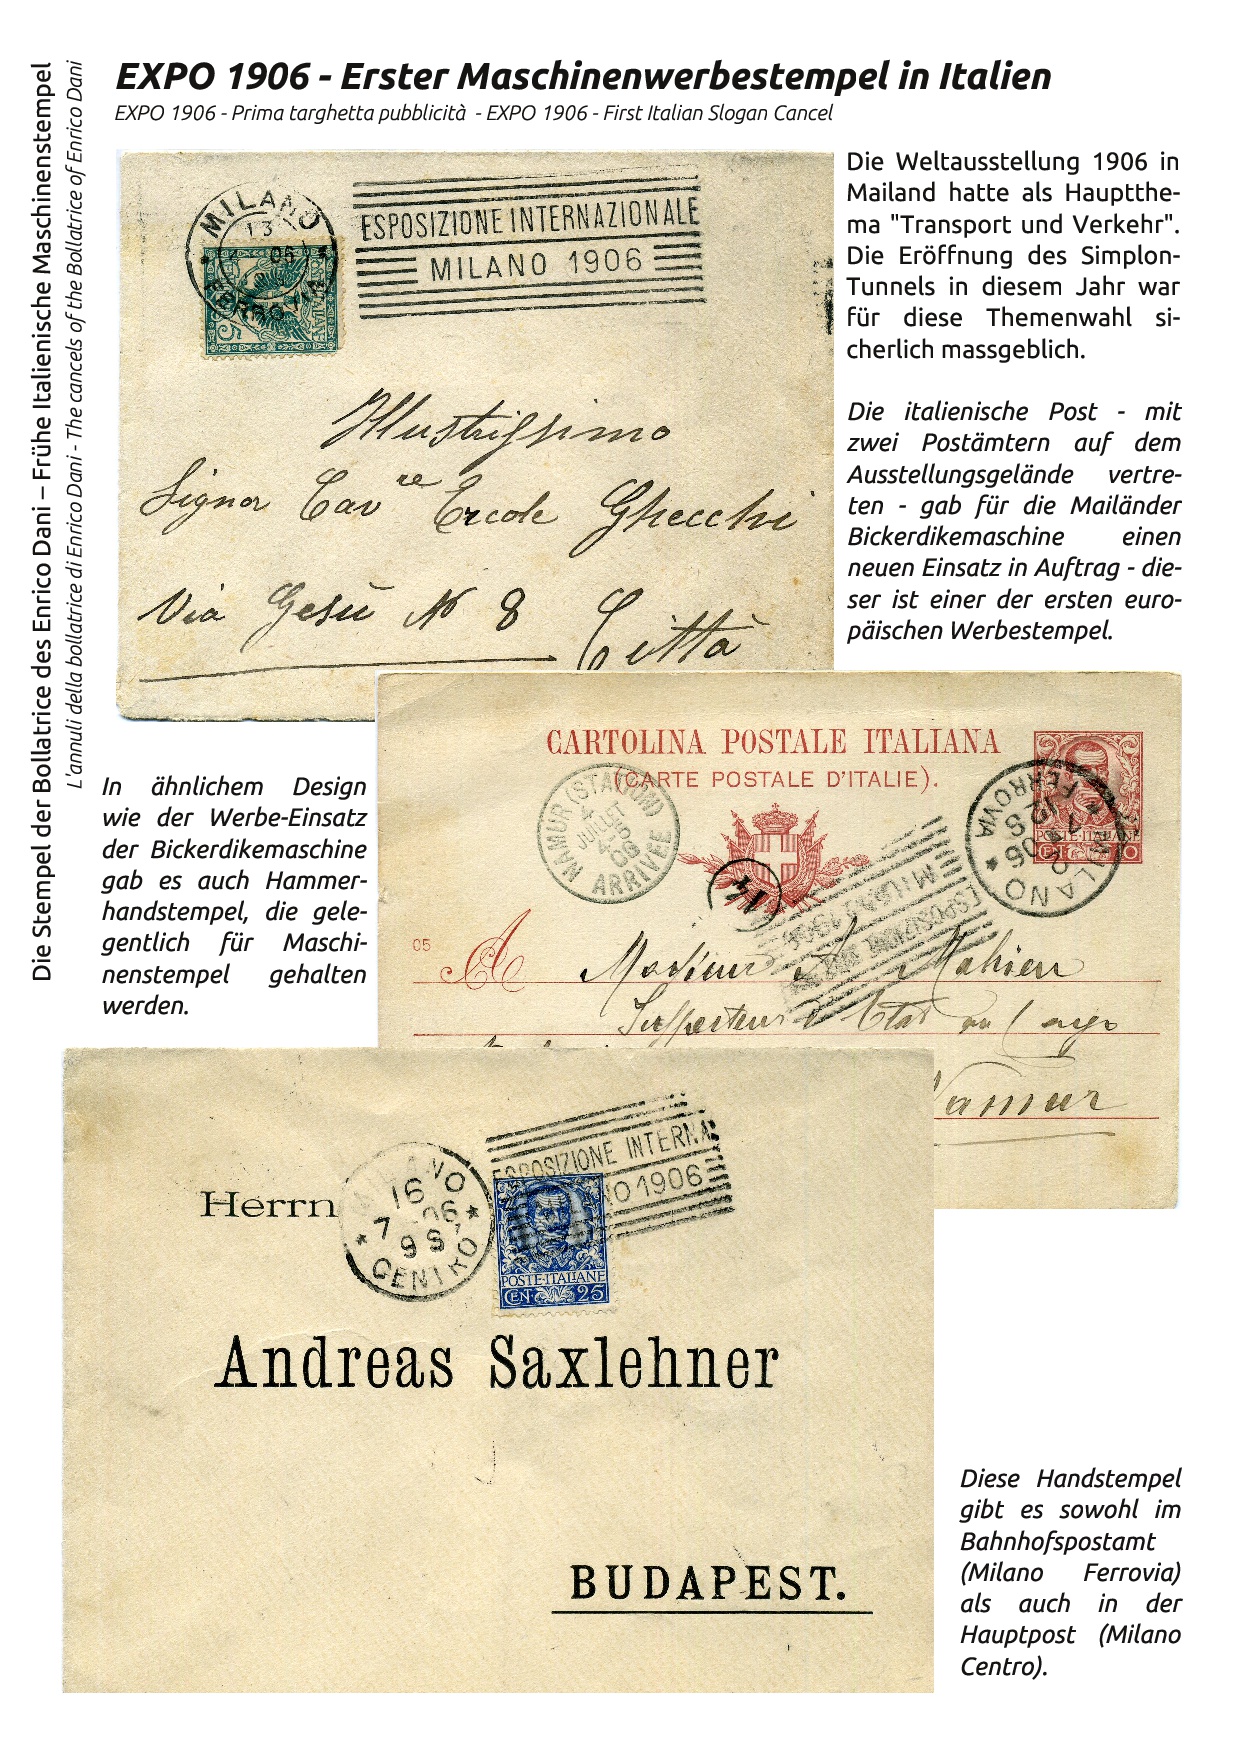 Die Stempel der Bollatrice des Enrico Dani – Frühe Italienische Maschinenstempel
L'annuli della bollatrice di Enrico Dani - The cancels of the Bollatrice of Enrico Dani
EXPO 1906 - Erster Maschinenwerbestempel in Italien
EXPO 1906 - Prima targhetta pubblicità - EXPO 1906 - First Italian Slogan Cancel
MILANO
13
06
5
ESPOSIZIONE INTERNAZIONALE
MILANO 1906
Illustrissimo
Signor Cav re Ercole Ghecchi
Via Gesù No 8
Città
Die Weltausstellung 1906 in
Mailand hatte als Hauptthe-
ma "Transport und Verkehr".
Die Eröffnung des Simplon-
Tunnels in diesem Jahr war
für diese Themenwahl si-
cherlich massgeblich.
Die italienische Post - mit
zwei Postämtern auf dem
Ausstellungsgelände vertre-
ten - gab für die Mailänder
Bickerdikemaschine einen
neuen Einsatz in Auftrag - die-
ser ist einer der ersten euro-
päischen Werbestempel.
CARTOLINA POSTALE ITALIANA
(CARTE POSTALE D'ITALIE).
NAMUR (STATION)
4
JUILLET
06
ARRIVÉE
14
MILANO
FERROVIA
POSTE ITALIANE
ESPOSIZIONE
MILANO 1906
05
A Monsieur A. Mahieu
Namur
In ähnlichem Design
wie der Werbe-Einsatz
der Bickerdikemaschine
gab es auch Hammer-
handstempel, die gele-
gentlich für Maschi-
nenstempel gehalten
werden.
ESPOSIZIONE INTERNA
NO 1906
MILANO
16
7 06
9 S
CENTRO
POSTE·ITALIANE
CEN. 25
Herrn
Andreas Saxlehner
BUDAPEST.
Diese Handstempel
gibt es sowohl im
Bahnhofspostamt
(Milano Ferrovia)
als auch in der
Hauptpost (Milano
Centro).